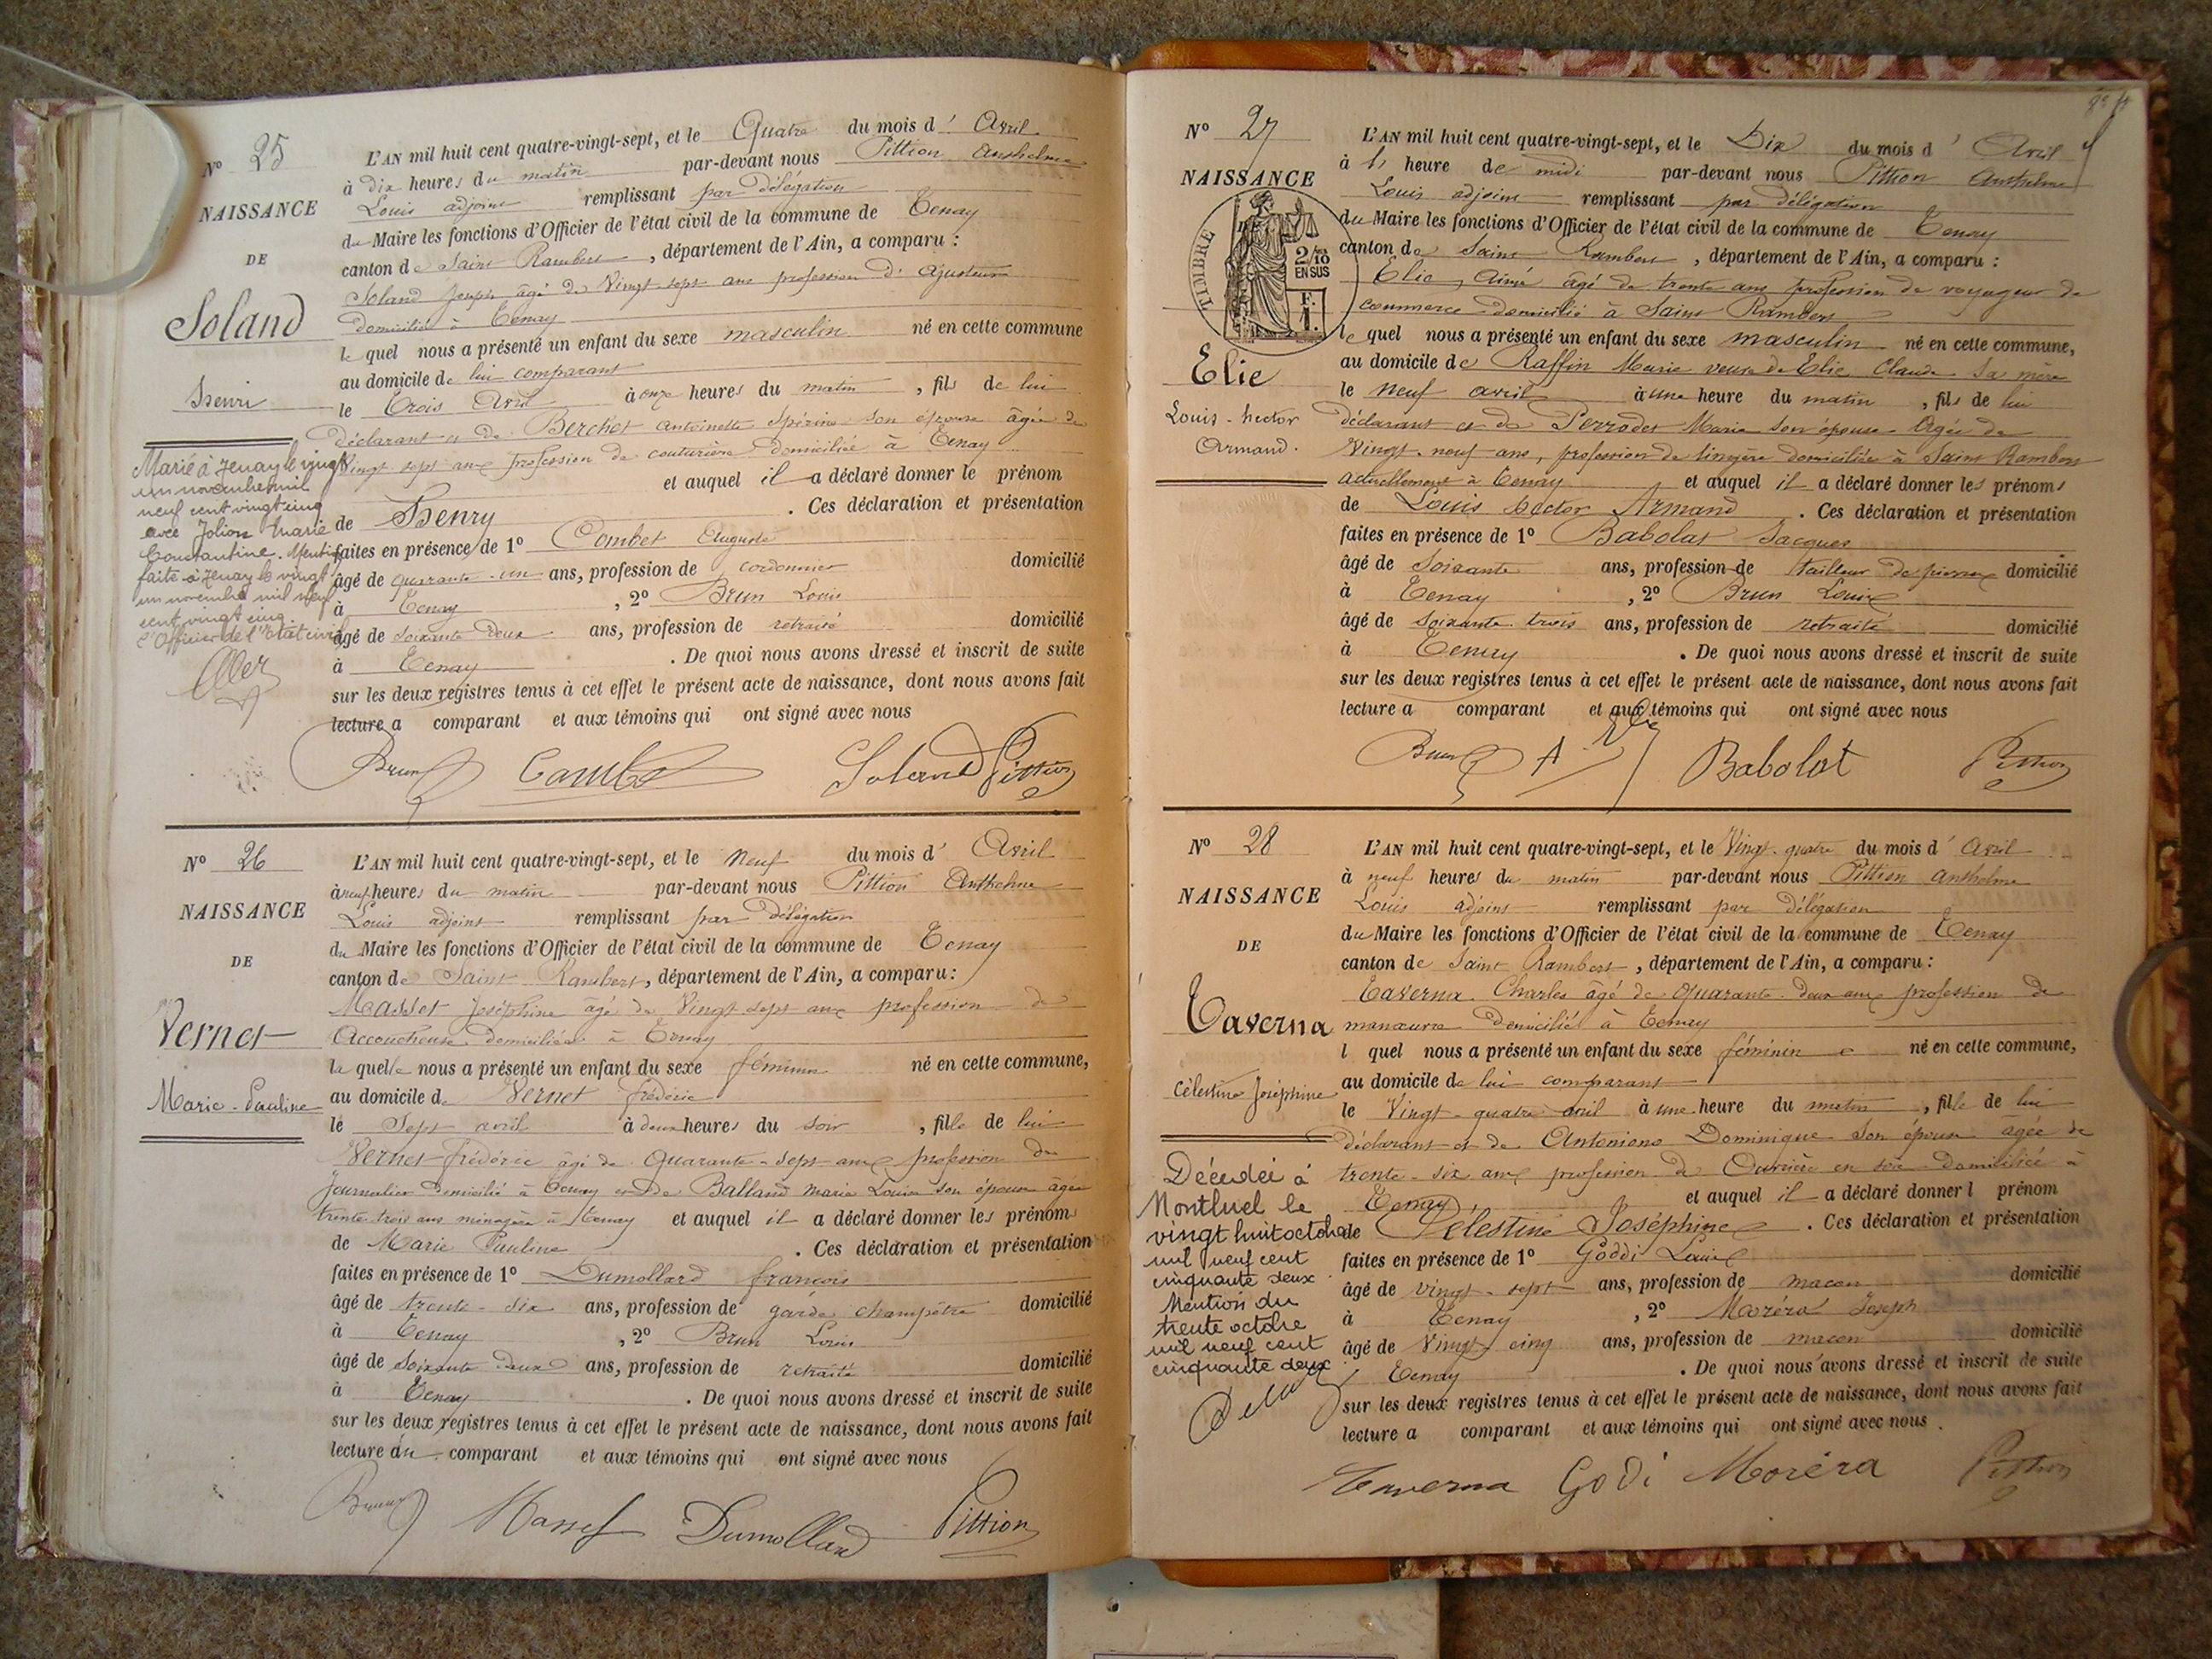 N° 25
NAISSANCE
DE
Soland
Henri
Marié à Tenay le vingt
un novembre mil
neuf cent vingt cinq
avec Jolion Marie
Constantine. Mention
faite à Tenay le vingt
un novembre mil neuf
cent vingt cinq.
l'Officier de l'Etat civil
L'AN mil huit cent quatre-vingt-sept, et le Quatre du mois d' Avril
à dix heures du matin par-devant nous Pittion Anthelme
Louis adjoint remplissant par délégation
du Maire les fonctions d'Officier de l'état civil de la commune de Tenay
canton de Saint Rambert, département de l'Ain, a comparu :
Soland Joseph âgé de Vingt-sept ans profession d'ajusteur
domicilié à Tenay
lequel nous a présenté un enfant du sexe masculin né en cette commune
au domicile de lui comparant
le Trois Avril à onze heures du matin, fils de lui
déclarant et de Berchet Antoinette Spérine son épouse âgée de
Vingt-sept ans profession de couturière domiciliée à Tenay
et auquel il a déclaré donner le prénom
de Henry. Ces déclaration et présentation
faites en présence de 1° Combet Auguste
âgé de quarante-un ans, profession de cordonnier domicilié
à Tenay, 2° Brun Louis
âgé de soixante deux ans, profession de retraité domicilié
à Tenay. De quoi nous avons dressé et inscrit de suite
sur les deux registres tenus à cet effet le présent acte de naissance, dont nous avons fait
lecture a comparant et aux témoins qui ont signé avec nous
Brun Combet Soland Pittion
N° 26
NAISSANCE
DE
Vernet
Marie-Pauline
L'AN mil huit cent quatre-vingt-sept, et le Neuf du mois d' Avril
à neuf heures du matin par-devant nous Pittion Anthelme
Louis adjoint remplissant par délégation
du Maire les fonctions d'Officier de l'état civil de la commune de Tenay
canton de Saint Rambert, département de l'Ain, a comparu :
Masset Joséphine âgé de Vingt sept ans profession de
Accoucheuse domiciliée à Tenay
laquelle nous a présenté un enfant du sexe féminin né en cette commune,
au domicile de Vernet frédéric
le Sept avril à deux heures du soir, fille de lui
Vernet frédéric âgé de Quarante-sept ans profession de
Journalier domicilié à Tenay et de Balland Marie Louise son épouse âgée
trente-trois ans ménagère à Tenay et auquel il a déclaré donner les prénoms
de Marie Pauline. Ces déclaration et présentation
faites en présence de 1° Dumollard françois
âgé de trente-six ans, profession de garde champêtre domicilié
à Tenay, 2° Brun Louis
âgé de soixante deux ans, profession de retraité domicilié
à Tenay. De quoi nous avons dressé et inscrit de suite
sur les deux registres tenus à cet effet le présent acte de naissance, dont nous avons fait
lecture au comparant et aux témoins qui ont signé avec nous
Brun Masset Dumollard Pittion
N° 27
NAISSANCE
TIMBRE
2/10
EN SUS
Elie
Louis-hector
Armand.
L'AN mil huit cent quatre-vingt-sept, et le Dix du mois d' Avril
à 1 heure de midi par-devant nous Pittion Anthelme
Louis adjoint remplissant par délégation
du Maire les fonctions d'Officier de l'état civil de la commune de Tenay
canton de Saint Rambert, département de l'Ain, a comparu :
Elie, Aimé âgé de trente ans profession de voyageur de
commerce domicilié à Saint Rambert
lequel nous a présenté un enfant du sexe masculin né en cette commune,
au domicile de Raffin Marie veuve de Elie Claude sa mère
le neuf avril à une heure du matin, fils de lui
déclarant et de Perrodet Marie son épouse âgée de
Vingt-neuf ans, profession de lingère domiciliée à Saint Rambert
actuellement à Tenay et auquel il a déclaré donner les prénoms
de Louis hector Armand. Ces déclaration et présentation
faites en présence de 1° Babolat Jacques
âgé de soixante ans, profession de tailleur de pierres domicilié
à Tenay, 2° Brun Louis
âgé de soixante trois ans, profession de retraité domicilié
à Tenay. De quoi nous avons dressé et inscrit de suite
sur les deux registres tenus à cet effet le présent acte de naissance, dont nous avons fait
lecture a comparant et aux témoins qui ont signé avec nous
Brun Babolat Pittion
N° 28
NAISSANCE
DE
Taverna
Célestine Joséphine
Décédée à
Montluel le
vingt huit octobre
mil neuf cent
cinquante deux
Mention du
trente octobre
mil neuf cent
cinquante deux
L'AN mil huit cent quatre-vingt-sept, et le Vingt-quatre du mois d' Avril
à neuf heures du matin par-devant nous Pittion Anthelme
Louis adjoint remplissant par délégation
du Maire les fonctions d'Officier de l'état civil de la commune de Tenay
canton de Saint Rambert, département de l'Ain, a comparu :
Taverna Charles âgé de Quarante-deux ans profession de
manœuvre domicilié à Tenay
l quel nous a présenté un enfant du sexe féminin né en cette commune,
au domicile de lui comparant
le Vingt-quatre avril à une heure du matin, fille de lui
déclarant et de Antonione Dominique son épouse âgée de
trente-six ans profession de Ouvrière en soie domiciliée à
Tenay et auquel il a déclaré donner l prénom
de Célestine Joséphine. Ces déclaration et présentation
faites en présence de 1° Goddi Louis
âgé de vingt-sept ans, profession de maçon domicilié
à Tenay, 2° Moréra Joseph
âgé de Vingt cinq ans, profession de maçon domicilié
Tenay. De quoi nous avons dressé et inscrit de suite
sur les deux registres tenus à cet effet le présent acte de naissance, dont nous avons fait
lecture a comparant et aux témoins qui ont signé avec nous.
Taverna Godi Moréra Pittion